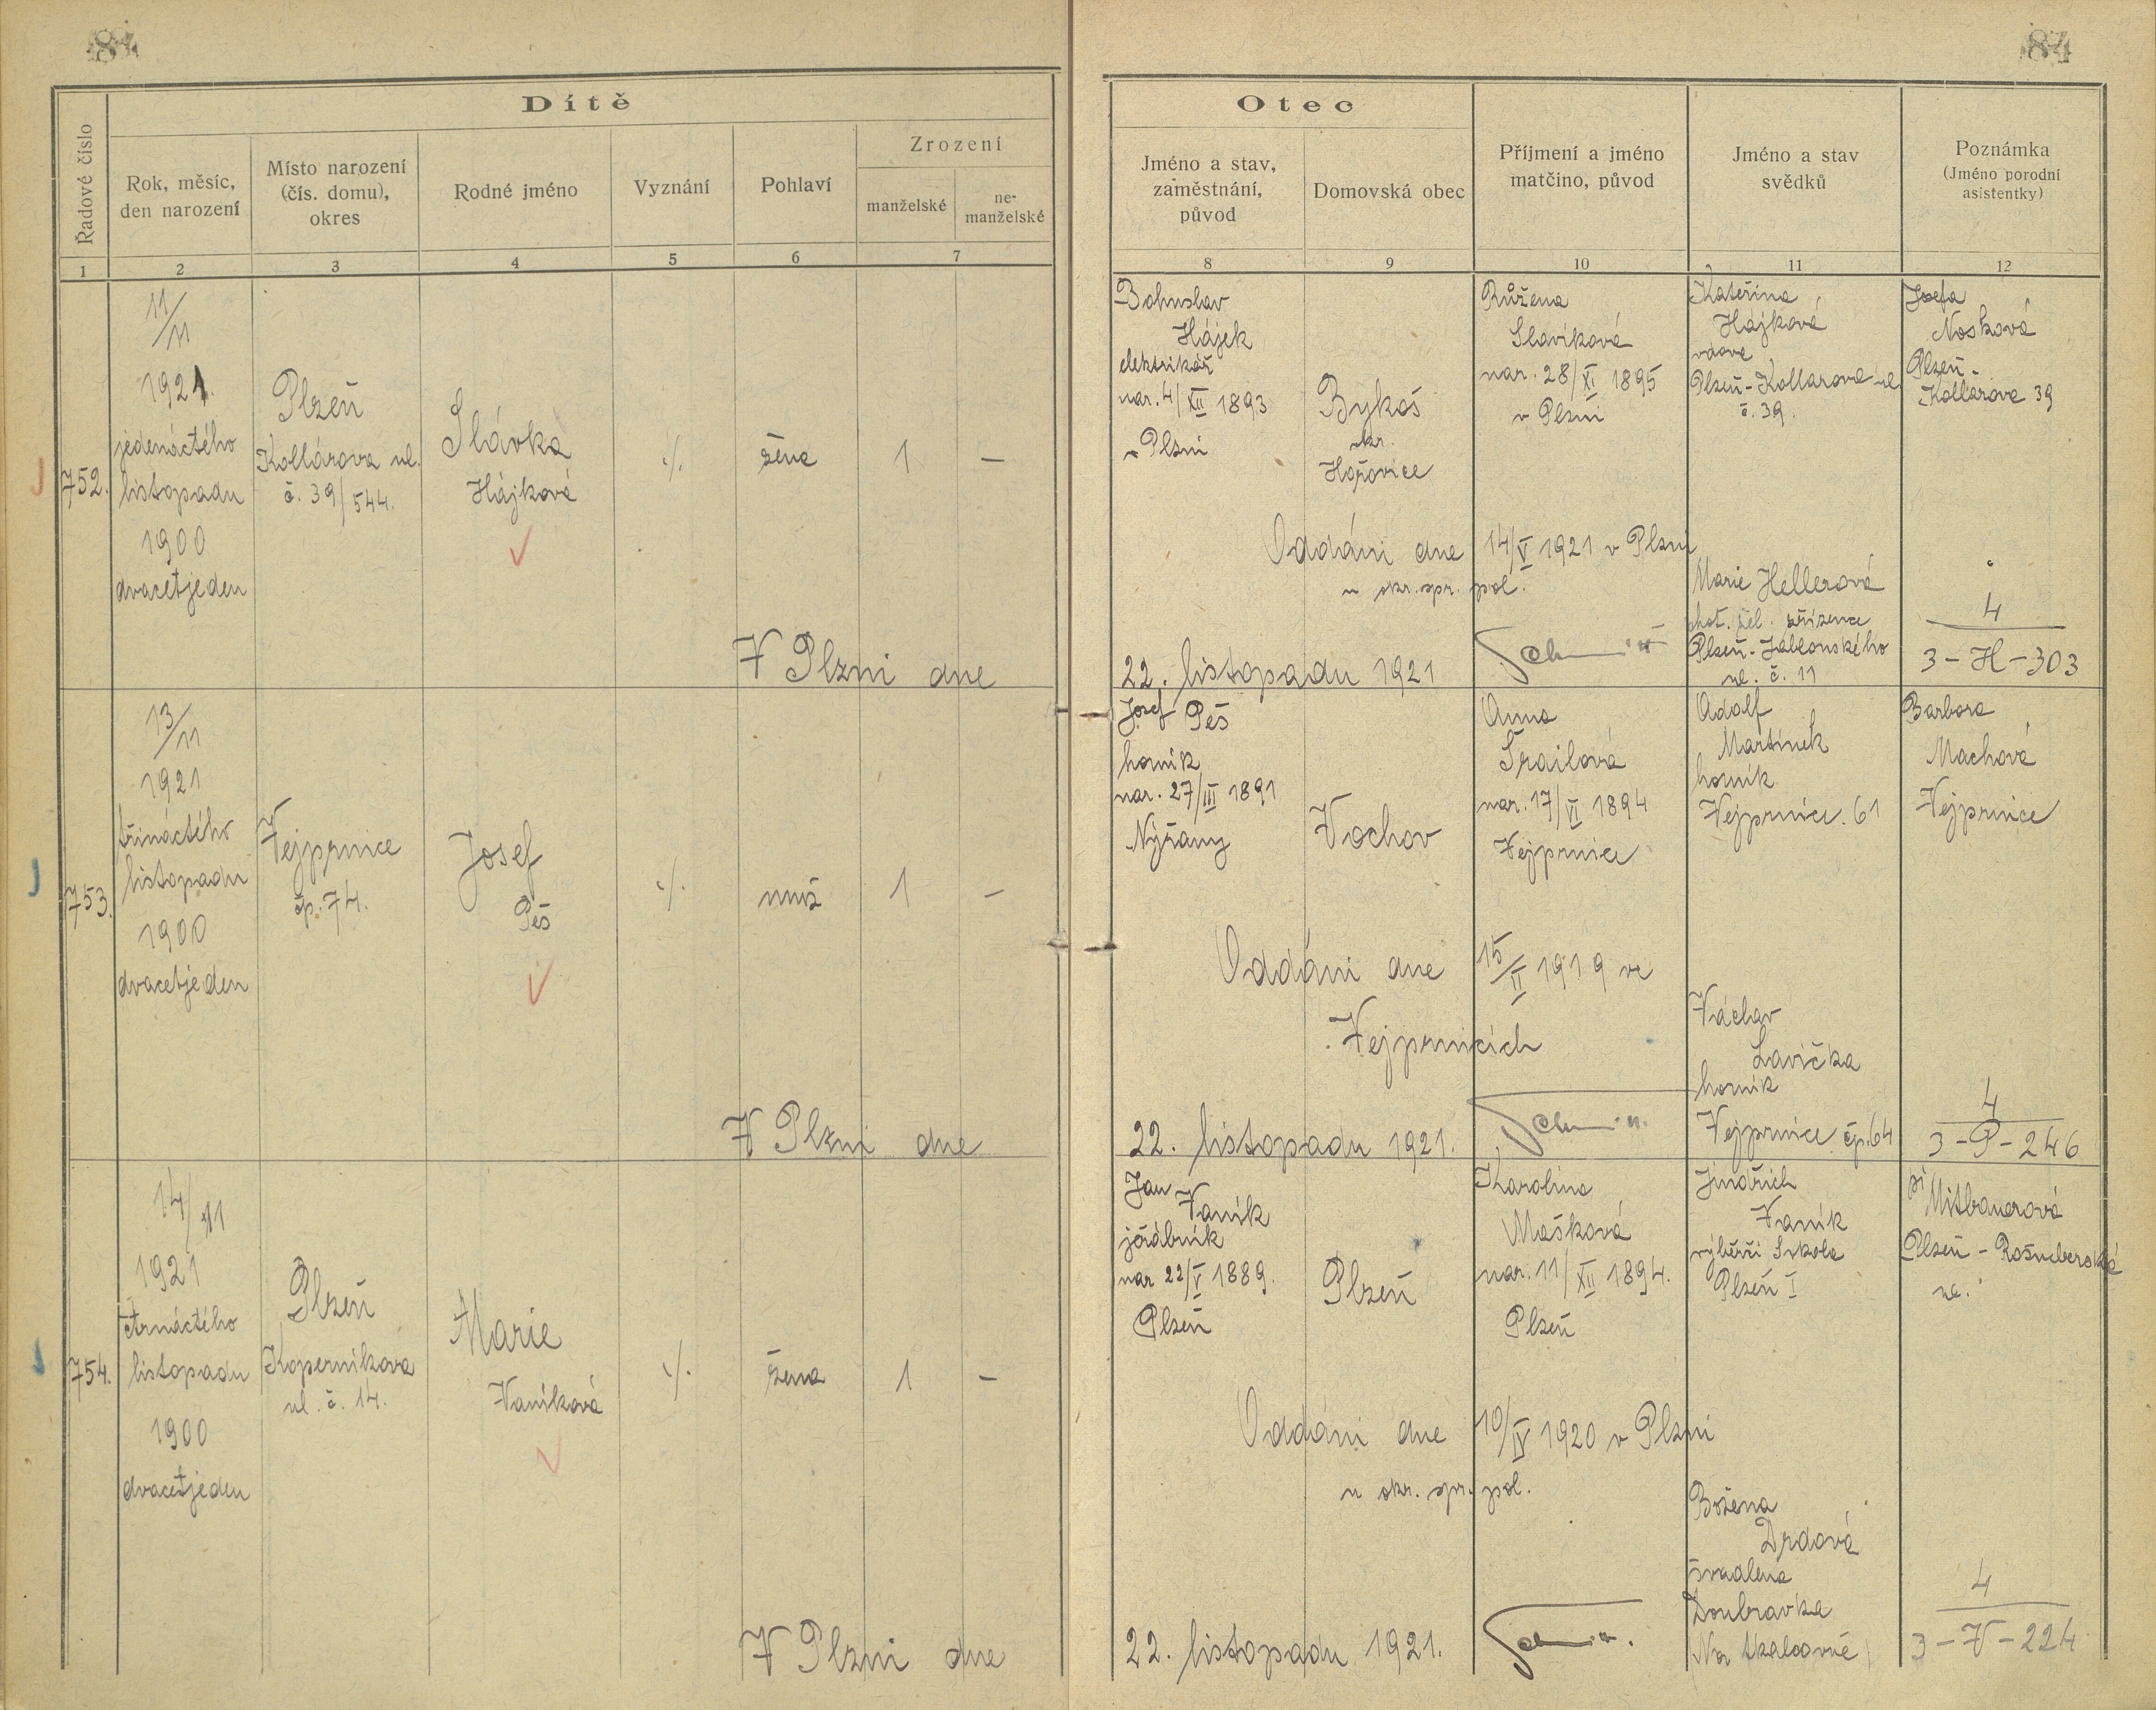 84
84
Dítě
Řadové číslo
Rok, měsíc,
den narození
Místo narození
(čís. domu),
okres
Rodné jméno
Vyznání
Pohlaví
Zrození
manželské
ne-
manželské
1
2
3
4
5
6
7
Otec
Jméno a stav,
zaměstnání,
původ
Domovská obec
Příjmení a jméno
matčino, původ
Jméno a stav
svědků
Poznámka
(Jméno porodní
asistentky)
8
9
10
11
12
752.
11/11
1921.
jedenáctého
listopadu
1900
dvacetjeden
Plzeň
Kollárova ul.
č. 39/544.
Slávka
Hájková
./.
žena
1
—
Bohuslav
Hájek
elektrikář
nar. 4/XII 1893
v Plzni
Bykoš
okr.
Hořovice
Růžena
Slavíková
nar. 28/XI 1895
v Plzni
Kateřina
Hájková
vdova
Plzeň-Kollarova ul
č. 39.
Josefa
Nosková
Plzeň-
Kollarova 39
Oddáni dne 14/V 1921 v Plzni
u okr. spr. pol.
Marie Hellerová
choť. žel. zřízence
Plzeň-Jablonského
ul. č. 11
4
3-H-303
V Plzni dne 22. listopadu 1921
753.
13/11
1921
třináctého
listopadu
1900
dvacetjeden
Vejprnice
čp. 74.
Josef
Peš
./.
muž
1
—
Josef Peš
horník
nar. 27/III 1891
Nýřany
Vochov
Anna
Šrailová
nar. 17/VI 1894
Vejprnice
Adolf
Martínek
horník
Vejprnice. 61
Barbora
Machová
Vejprnice
Oddáni dne 15/II 1919 ve
Vejprnicích
Václav
Lavička
horník
Vejprnice čp. 64
4
3-P-246
V Plzni dne 22. listopadu 1921.
754.
14/11
1921
čtrnáctého
listopadu
1900
dvacetjeden
Plzeň
Koperníkova
ul. č. 14.
Marie
Vaníková
./.
žena
1
—
Jan
Vaník
jeřábník
nar 22/V 1889.
Plzeň
Plzeň
Karolina
Mašková
nar. 11/XII 1894.
Plzeň
Jindřich
Vaník
výběrčí
Plzeň I
pí Mitbauerová
Plzeň -
ul.
Oddáni dne 10/IV 1920 v Plzni
u okr. spr. pol.
Božena
Drdová
švadlena
Doubravka
Na
4
3-V-224
V Plzni dne 22. listopadu 1921.